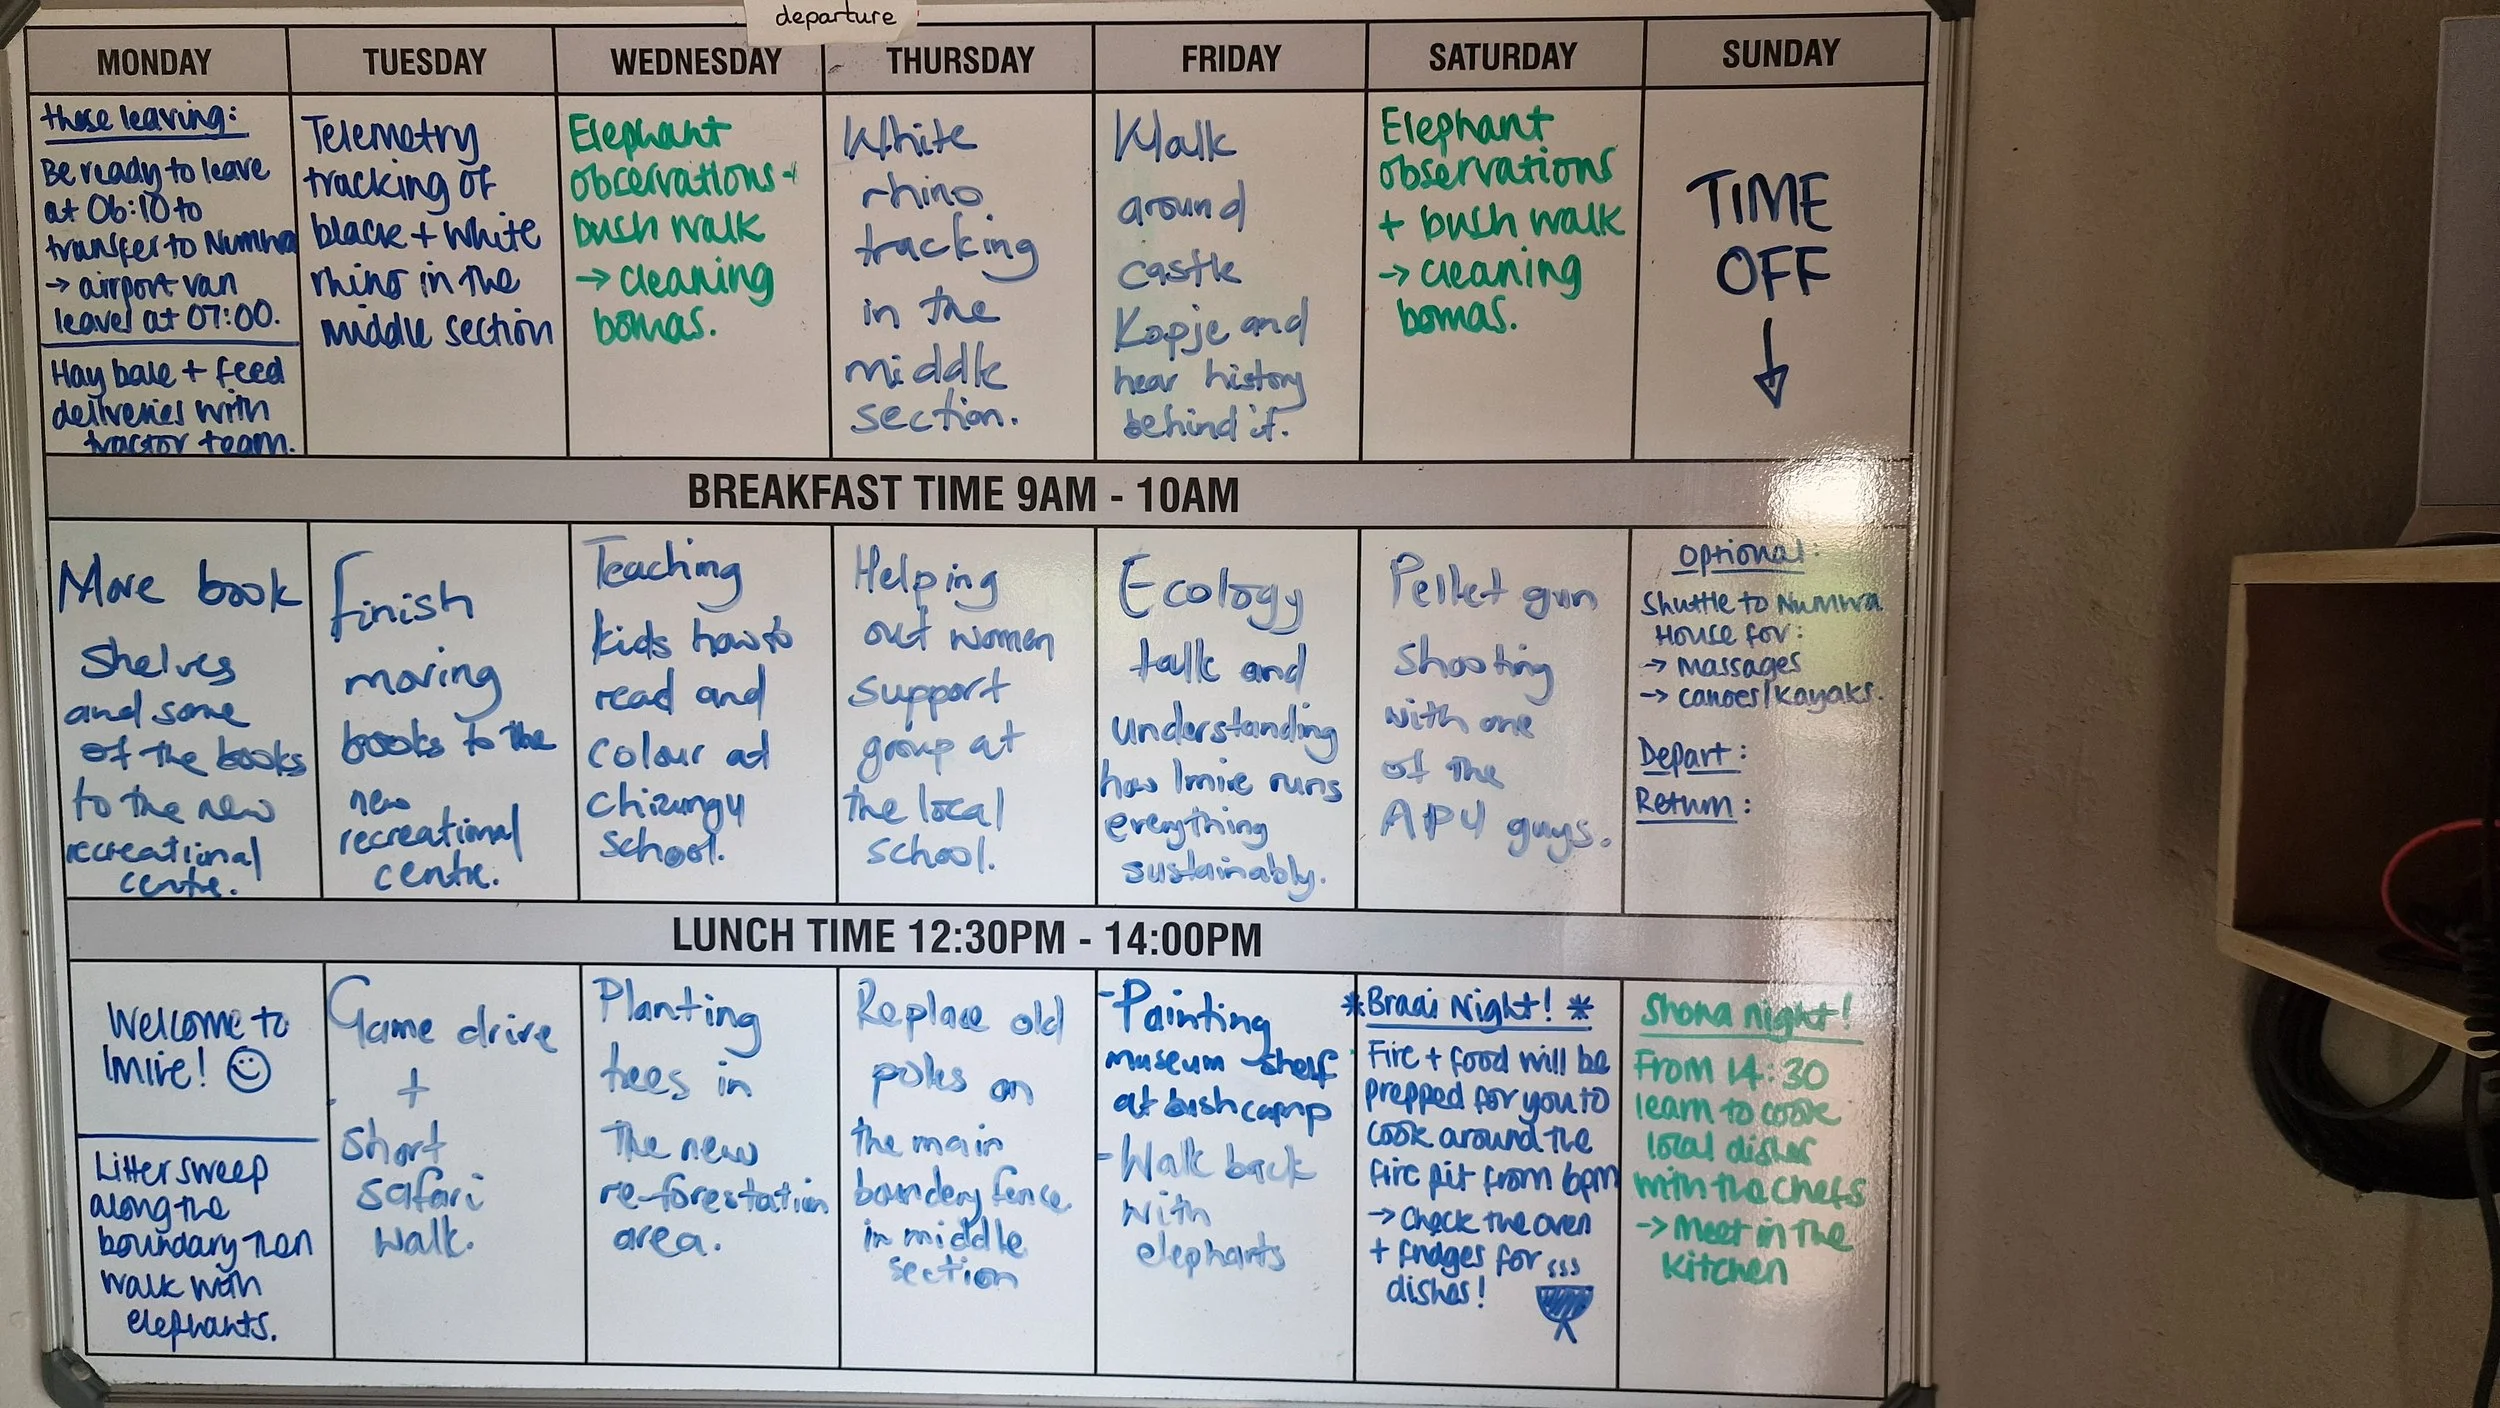 departure
MONDAY
TUESDAY
WEDNESDAY
THURSDAY
FRIDAY
SATURDAY
SUNDAY
those leaving:
Be ready to leave
at 06:10 to
transfer to Numwa
→ airport van
leaves at 07:00.
Hay bale + feed
deliveries with
tractor team.
Telemetry
tracking of
black + white
rhino in the
middle section
Elephant
observations +
bush walk
→ cleaning
bomas.
White
rhino
tracking
in the
middle
section.
Walk
around
castle
Kopje and
hear history
behind it.
Elephant
observations
+ bush walk
→ cleaning
bomas.
TIME
OFF
↓
BREAKFAST TIME 9AM - 10AM
More book
shelves
and some
of the books
to the new
recreational
centre.
Finish
moving
books to the
new
recreational
centre.
Teaching
kids how to
read and
colour at
chizungu
school.
Helping
out women
support
group at
the local
school.
Ecology
talk and
understanding
how Imire runs
everything
sustainably.
Pellet gun
shooting
with one
of the
APU guys.
Optional:
Shuttle to Numwa
House for:
→ massages
→ canoes/kayaks.
Depart:
Return:
LUNCH TIME 12:30PM - 14:00PM
Welcome to
Imire! ☺
Litter sweep
along the
boundary then
walk with
elephants.
Game drive
+
short
safari
walk.
Planting
trees in
the new
re-forestation
area.
Replace old
poles on
the main
boundery fence
in middle
section
-Painting
museum shelf
at bushcamp
-Walk back
with
elephants
*Braai Night! *
Fire + food will be
prepped for you to
cook around the
fire pit from 6pm
→ Check the oven
+ fridges for
dishes!
Shona night!
From 14:30
learn to cook
local dishes
with the chefs
→ Meet in the
kitchen